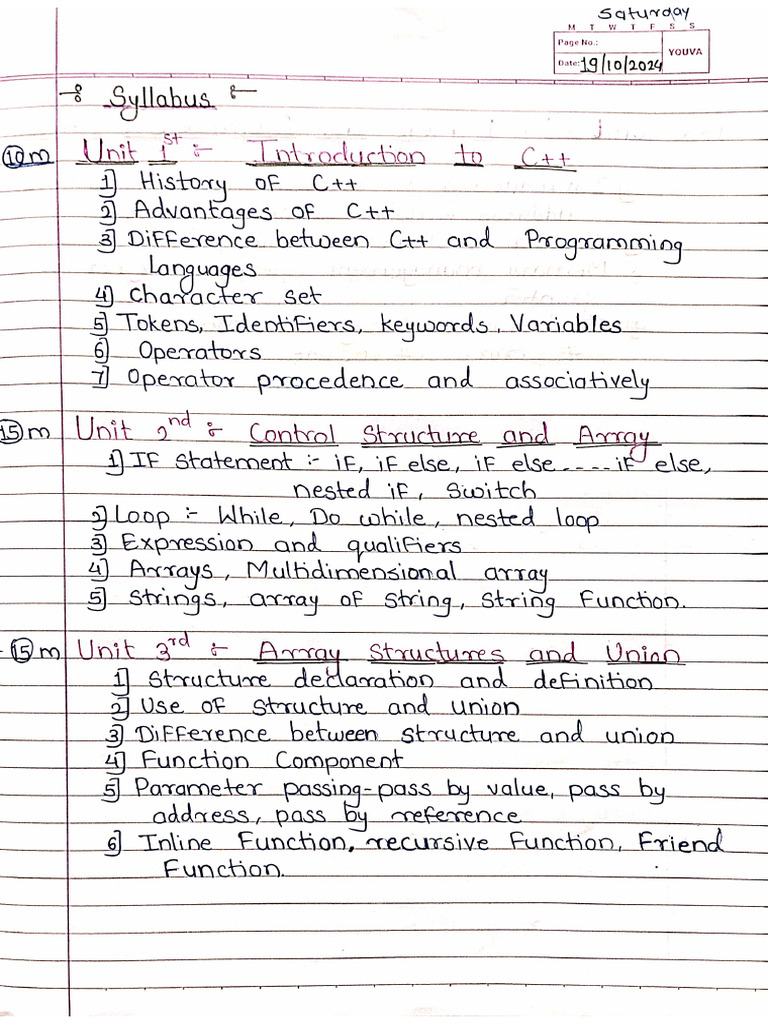 Saturday
M T W T F S S
Page No.:
YOUVA
Date: 19/10/2024
Syllabus
10m Unit 1st :- Introduction to C++
1] History of C++
2] Advantages of C++
3] Difference between C++ and Programming
Languages
4] Character set
5] Tokens, Identifiers, keywords, Variables
6] Operators
7] Operator procedence and associatively
15m Unit 2nd :- Control Structure and Array
1] If Statement :- if, if else, if else.....if else,
nested if, Switch
2] Loop :- While, Do while, nested loop
3] Expression and qualifiers
4] Arrays, Multidimensional array
5] Strings, array of string, String Function.
15m Unit 3rd :- Array Structures and Union
1] Structure declaration and definition
2] Use of structure and union
3] Difference between structure and union
4] Function Component
5] Parameter passing-pass by value, pass by
address, pass by reference
6] Inline Function, recursive Function, Friend
Function.